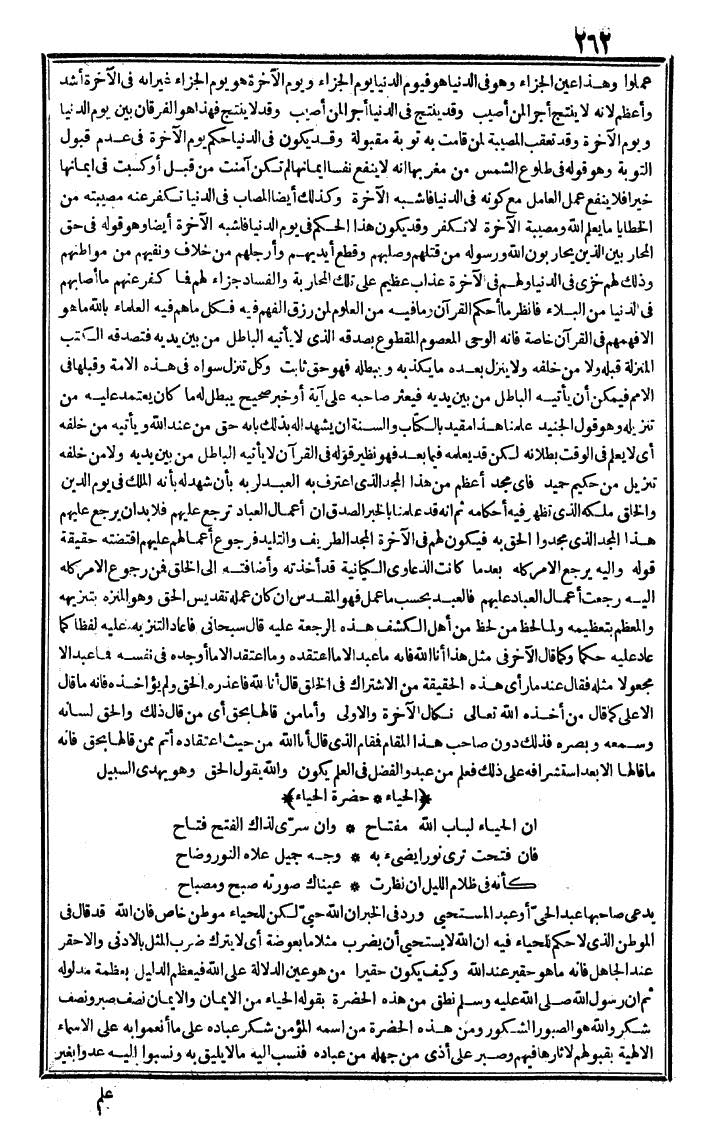 ٢٦٢
عملوا وهذا عين الجزاء وهو فى الدنيا هو فيوم الدنيا يوم الجزاء ويوم الآخرة هو يوم الجزاء غير انه فى الآخرة أشد
وأعظم لانه لا ينتج أجر المن أصيب وقد ينتج فى الدنيا أجر المن أصيب وقد لا ينتج فهذا هو الفرقان بين يوم الدنيا
ويوم الآخرة وقد تعقب المصيبة لمن قامت به توبة مقبولة وقد يكون فى الدنيا حكم يوم الآخرة فى عدم قبول
التوبة وهو قوله فى طلوع الشمس من مغربها انه لا ينفع نفسا ايمانها لم تكن آمنت من قبل أو كسبت فى ايمانها
خيرا فلا ينفع عمل العامل مع كونه فى الدنيا فاشبه الآخرة وكذلك أيضا المصاب فى الدنيا تكفر عنه مصيبته من
الخطايا ما يعلم الله ومصيبة الآخرة لا تكفر وقد يكون هذا الحكم فى يوم الدنيا فاشبه الآخرة أيضا وهو قوله فى حق
المحاربين الذين يحاربون الله ورسوله من قتلهم وصلبهم وقطع أيديهم وأرجلهم من خلاف ونفيهم من مواطنهم
وذلك لهم خزى فى الدنيا ولهم فى الآخرة عذاب عظيم على تلك المحاربة والفساد جزاء لهم فما كفر عنهم ما أصابهم
فى الدنيا من البلاء فانظر ما أحكم القرآن وما فيه من العلوم لمن رزق الفهم فيه فكل ما هم فيه العلماء بالله ما هو
الا فهمهم فى القرآن خاصة فانه الوحى المعصوم المقطوع بصدقه الذى لا يأتيه الباطل من بين يديه فتصدقه الكتب
المنزلة قبله ولا من خلفه ولا ينزل بعده ما يكذبه ويبطله فهو حق ثابت وكل تنزل سواه فى هذه الامة وقبلها فى
الامم فيمكن أن يأتيه الباطل من بين يديه فيعثر صاحبه على آية أو خبر صحيح يبطل له ما كان يعتمد عليه من
تنزيله وهو قول الجنيد علمنا هذا مقيد بالكتاب والسنة ان يشهدا له بذلك بانه حق من عند الله ويأتيه من خلفه
أى لا يعلم فى الوقت بطلانه لكن قد يعلمه فيما بعد فهو نظير قوله فى القرآن لا يأتيه الباطل من بين يديه ولا من خلفه
تنزيل من حكيم حميد فاى مجد أعظم من هذا المجد الذى اعترف به العبد لربه بأن شهد له بأنه الملك فى يوم الدين
والخلق ملكه الذى تظهر فيه أحكامه ثم انه قد علمنا بالخبر الصدق ان أعمال العباد ترجع عليهم فلا بد ان يرجع عليهم
هذا المجد الذى مجدوا الحق به فيكون لهم فى الآخرة المجد الطريف والتليد فرجوع أعمالهم عليهم اقتضته حقيقة
قوله واليه يرجع الامر كله بعدما كانت الدعاوى الكيانية قد أخذته وأضافته الى الخلق فمن رجوع الامر كله
اليه رجعت أعمال العباد عليهم فالعبد بحسب ما عمل فهو المقدس ان كان عمله تقديس الحق وهو المنزه بتنزيهه
والمعظم بتعظيمه ولما لحظ من لحظ من أهل الكشف هذه الرجعة عليه قال سبحانى فاعاد التنزيه عليه لفظا كما
عاد عليه حكما وكما قال الآخر فى مثل هذا أنا الله فانه ما عبد الا ما اعتقده وما اعتقد الا ما أوجده فى نفسه فما عبد الا
مجعولا مثله فقال عندما رأى هذه الحقيقة من الاشتراك فى الخلق قال أنا الله فاعذره الحق ولم يؤاخذه فانه ما قال
الا على كما قال من أخذه الله تعالى نكال الآخرة والاولى وأما من قالها بحق أى من قال ذلك والحق لسانه
وسمعه وبصره فذلك دون صاحب هذا المقام فمقام الذى قال أنا الله من حيث اعتقاده أتم ممن قالها بحق فانه
ما قالها الا بعد استشرافه على ذلك فعلم من عبد والفضل فى العلم يكون والله يقول الحق وهو يهدى السبيل
﴿الحياء * حضرة الحياء﴾
ان الحياء لباب الله مفتاح * وان سرّى لذاك الفتح فتاح
فان فتحت ترى نورا يضىء به * وجه جميل علاه النور وضاح
كأنه فى ظلام الليل ان نظرت * عيناك صورته صبح ومصباح
يدعى صاحبها عبد الحيى أو عبد المستحيى ورد فى الخبر ان الله حيىّ لكن للحياء موطن خاص فان الله قد قال فى
الموطن الذى لا حكم للحياء فيه ان الله لا يستحيى أن يضرب مثلا ما بعوضة أى لا يترك ضرب المثل بالادنى والاحقر
عند الجاهل فانه ما هو حقير عند الله وكيف يكون حقيرا من هو عين الدلالة على الله فيعظم الدليل بعظمة مدلوله
ثم ان رسول الله صلى الله عليه وسلم نطق من هذه الحضرة بقوله الحياء من الايمان والايمان نصف صبر ونصف
شكر والله هو الصبور الشكور ومن هذه الحضرة من اسمه المؤمن شكر عباده على ما أنعموا به على الاسماء
الالهية بقبولهم لاثارها فيهم وصبر على أذى من جهله من عباده فنسب اليه ما لا يليق به ونسبوا اليه عدوا بغير
علم